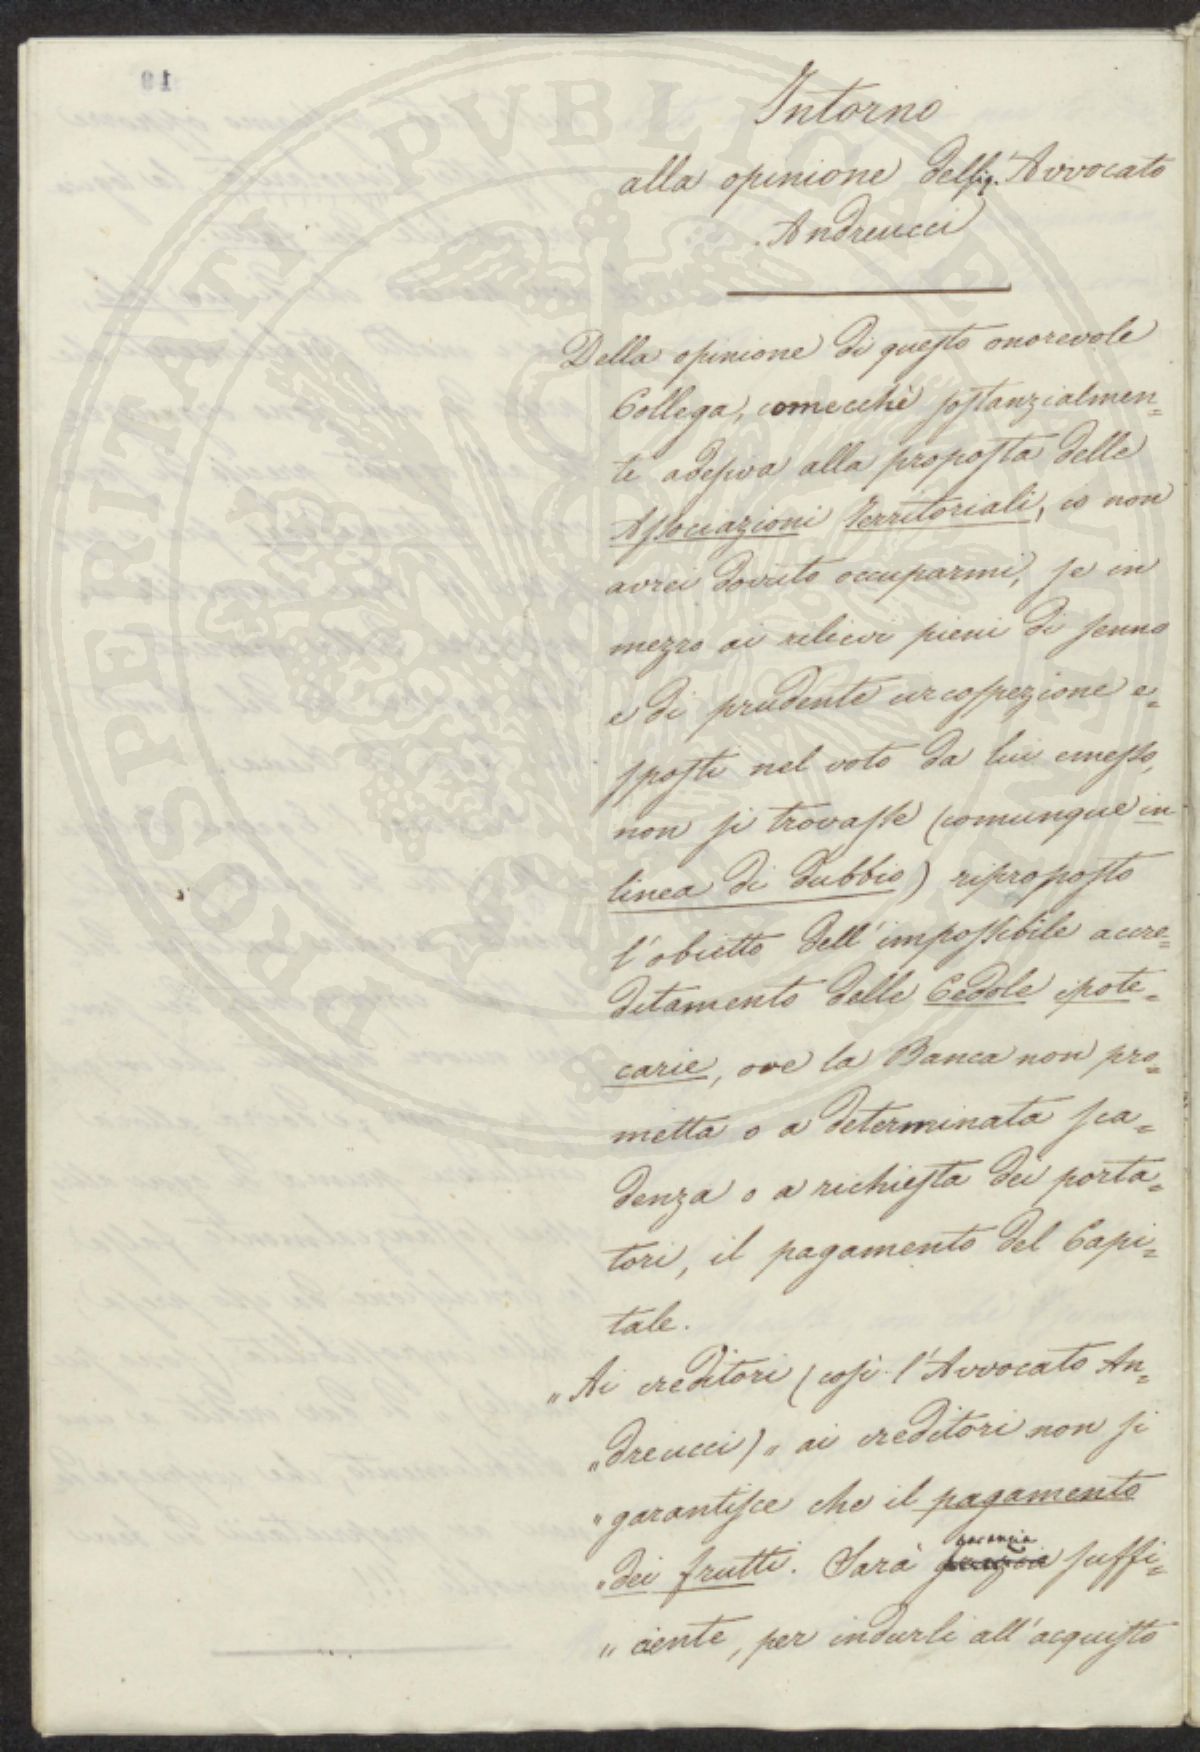 Intorno
alla opinione del Sig. Avvocato
Andreucci
Della opinione di questo onorevole
Collega, comecchè sostanzialmen=
te adesiva alla proposta delle
Associazioni Territoriali, io non
avrei dovuto occuparmi, se in
mezzo ai rilievi pieni di senno
e di prudente circospezione e=
sposti nel voto da lui emesso,
non si trovasse (comunque in
linea di dubbio) riproposto
l'obietto dell'impossibile accre=
ditamento delle Cedole ipote=
carie, ove la Banca non pro=
metta o a determinata sca=
denza o a richiesta dei porta=
tori, il pagamento del Capi=
tale.
"Ai creditori (così l'Avvocato An=
"dreucci) " ai creditori non si
"garantisce che il pagamento
"dei frutti. Sarà garanzia suffi=
"ciente, per indurli all'acquisto
PROSPERITATI PUBLICAE
19